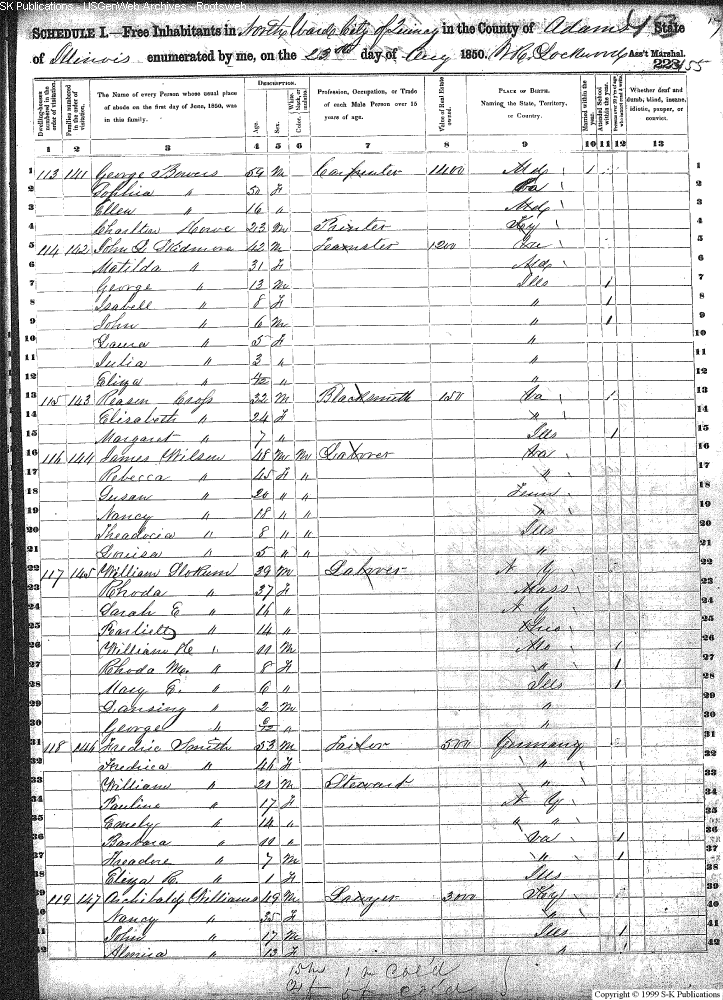 SK Publications - USGenWeb Archives - Rootsweb
SCHEDULE I.—Free Inhabitants in North Ward City of Quincy in the County of Adams State
of Illinois enumerated by me, on the 23rd day of Aug 1850. Lockwood Ass't Marshal.
Dwelling-houses numbered in the order of visitation. Families numbered in the order of visitation. The Name of every Person whose usual place of abode on the first day of June, 1850, was in this family. Description. Age. Sex. Color. Profession, Occupation, or Trade of each Male Person over 15 years of age. Value of Real Estate owned. Place of Birth. Naming the State, Territory, or Country. Married within the year. Attended School within the year. Whether deaf and dumb, blind, insane, idiotic, pauper, or convict.
1 2 3 4 5 6 7 8 9 10 11 12 13
1 113 141 George Bowers 59 M Carpenter 1400 Md 1 1
2 Sophia " 50 F Va 2
3 Ellen " 16 " Md 3
4 Charlton 23 M Printer Ky 4
5 114 142 John S Skidmore 42 M Teamster 1200 Va 5
6 Matilda " 31 F Md 6
7 George " 13 M Ills 1 7
8 Isabell " 8 F " 1 8
9 John " 6 M " 1 9
10 Laura " 5 F " 10
11 Julia " 3 " " 11
12 Eliza " " " 12
13 115 143 Reasen Cross 32 M Blacksmith 150 Va 13
14 Elisabeth " 24 F " 14
15 Margaret " 7 " Ills 1 15
16 116 144 James Wilson 48 M M Labover Va 16
17 Rebecca " 45 F " " 17
18 Susan " 20 " " Tenn 18
19 Nancy " 18 " " " 19
20 Theadocia " 8 " " Ills 20
21 Louisa " 5 " " " 21
22 117 145 William Slokum 39 M Labover N Y 22
23 Rhoda " 37 F Mass 23
24 Sarah E " 16 " N Y 24
25 " 14 " Ohio 25
26 William H " 11 M 1 26
27 Rhoda M. " 8 F " 1 27
28 Mary E. " 6 " Ills 1 28
29 Lansing " 2 M " 29
30 George " " 30
31 118 146 Fredric Smith 53 M Tailor 500 Germany 31
32 Fredrica " 46 F " 32
33 William " 21 M Steward " 33
34 Pauline " 17 F N Y 34
35 Emely " 14 " " " 35
36 Barbara " 11 " Va 1 36
37 Theadore " 7 M " 1 37
38 Eliza R. " 1 F Ills 38
39 119 147 Archibald Williams 49 M Lawyer 3000 Key 39
40 Nancy " 35 F " 40
41 John " 17 M Ills 1 41
42 Almira " 13 F " 1 42
Copyright © 1999 S-K Publications